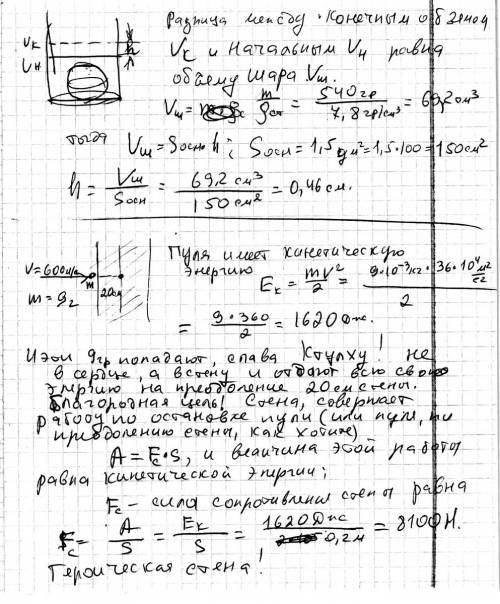 Разница между конечным объемом
Vк и начальным Vн равна
объему шара Vш.
Vк
Vн
h
Vш = m/ρст = 540гр / 7,8гр/см³ = 69,2 см³
тогда Vш = Sосн·h; Sосн = 1,5 дм² = 1,5·100 = 150 см²
h = Vш/Sосн = 69,2 см³ / 150 см² = 0,46 см.
Пуля имеет кинетическую
энергию
V=600м/с
m = 9г
m
20см
Eк = mv²/2 = 9·10⁻³кг · 36·10⁴ м²/с² / 2
= 9·360/2 = 1620 Дж.
И эти 9гр попадают, слава Ктулху! не
в сердце, а в стену и отдают всю свою
энергию на преодоление 20 см стены.
Благородная цель! Стена, совершает
работу по остановке пули (или пуля, по
преодолению стены, как хотите)
A = Fс·S, и величина этой работы
равна кинетической энергии;
Fс – сила сопротивления стены равна
Fс = A/S = Eк/S = 1620Дж / 0,2м = 8100Н.
Героическая стена!